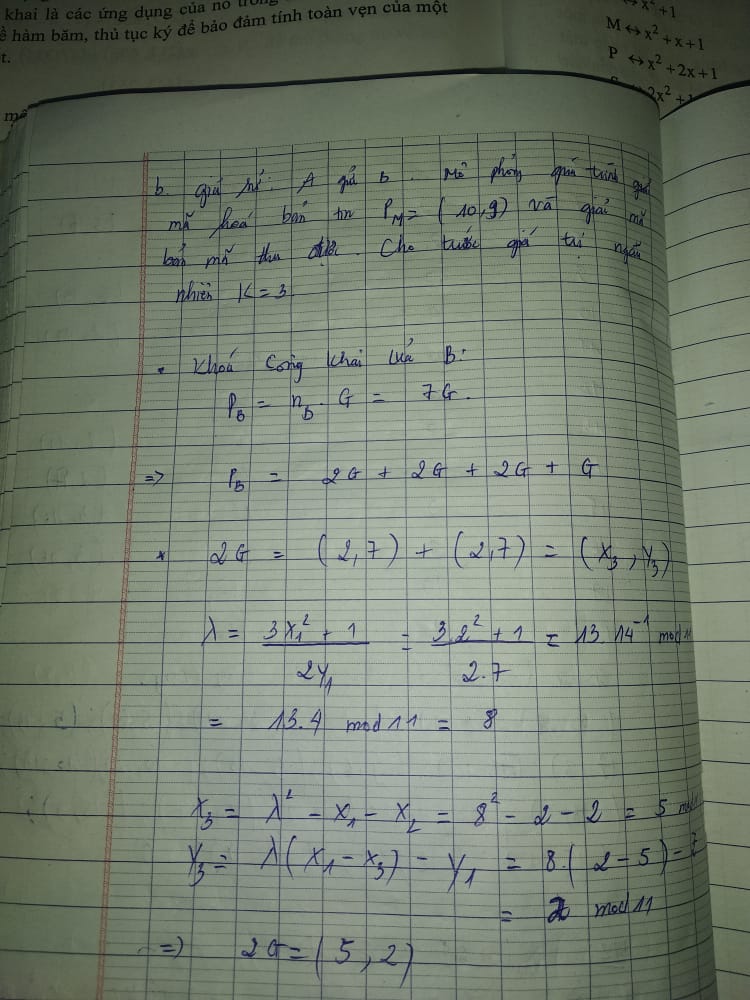 khai là các ứng dụng của nó trong
ề hàm băm, thủ tục ký để bảo đảm tính toàn vẹn của một
t.
↔ x² + 1
M ↔ x² + x + 1
P ↔ x² + 2x + 1
2x² + 1
b. giả sử: A gửi B. Mô phỏng quá trình
mã hoá bản tin P_M = (10,9) và giải mã
bản mã thu được. Cho trước giá trị ngẫu
nhiên K = 3.
• Khoá công khai của B:
P_B = n_B . G = 7G.
=> P_B = 2G + 2G + 2G + G
* 2G = (2,7) + (2,7) = (x₃, y₃)
λ = (3x₁² + 1)/(2y₁) = (3.2² + 1)/(2.7) = 13.14⁻¹ mod 11
= 13.4 mod 11 = 8
x₃ = λ² - x₁ - x₂ = 8² - 2 - 2 = 5 mod 11
y₃ = λ(x₁ - x₃) - y₁ = 8.(2 - 5) - 7
= 2 mod 11
=> 2G = (5, 2)